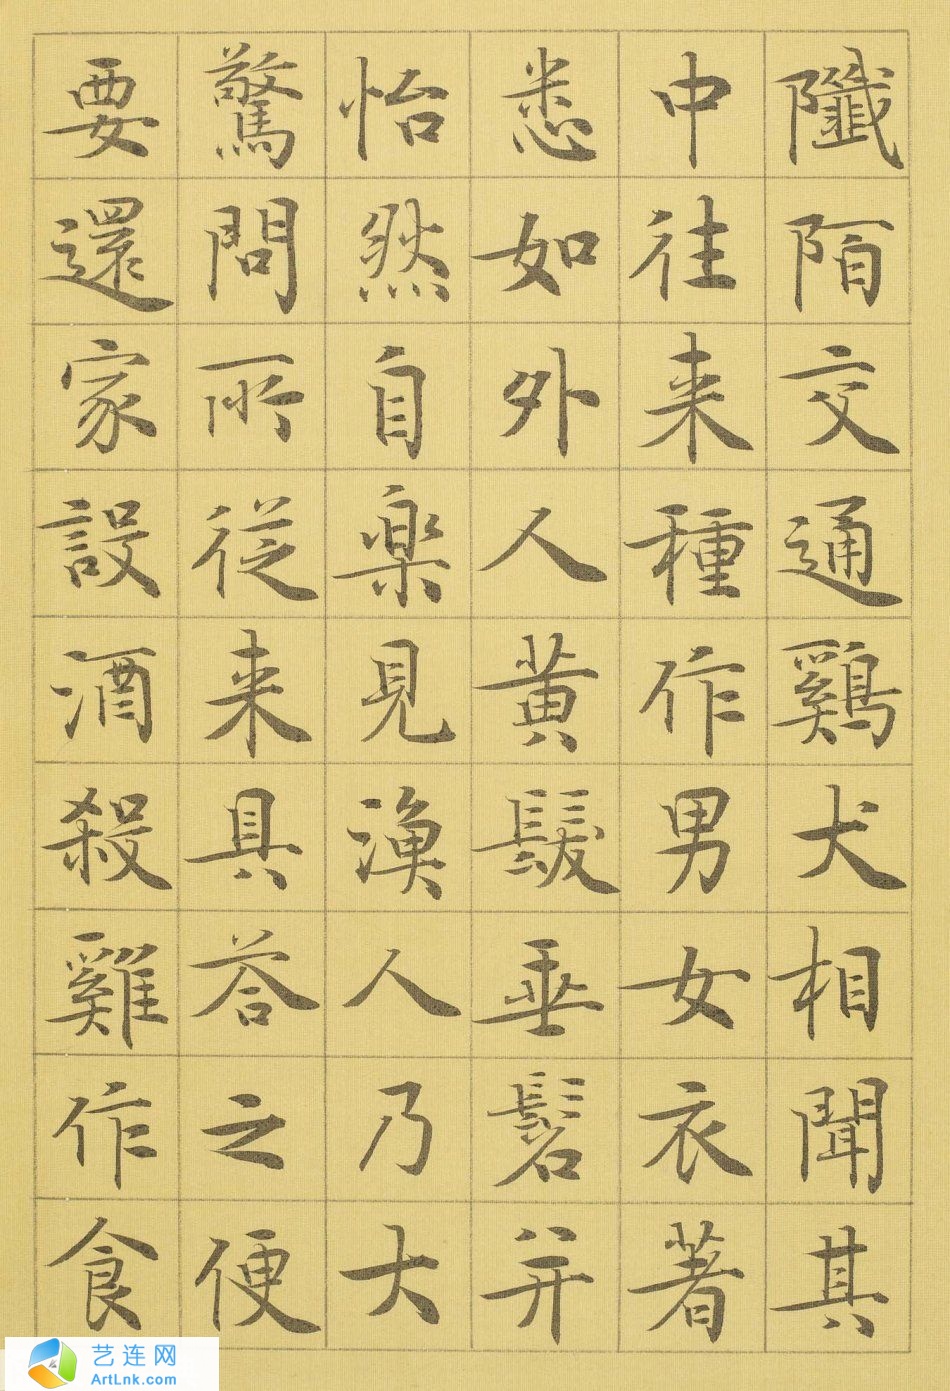 陌交通鷄犬相聞其
中往来種作男女衣著
悉如外人黄髮垂髫并
怡然自楽見漁人乃大
驚問所従来具荅之便
要還家設酒殺雞作食
艺连网
ArtLnk.com